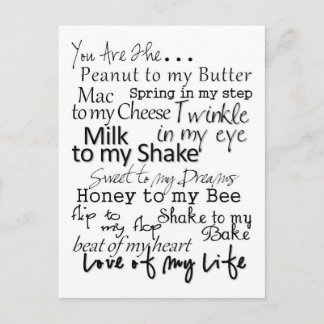 You Are The...
Peanut to my Butter
Mac
Spring in my step
to my Cheese
Twinkle
in my eye
Milk
to my Shake
Sweet to my Dreams
Honey to my Bee
flip to
my flop
Shake to my
Bake
beat of my heart
Love of my Life